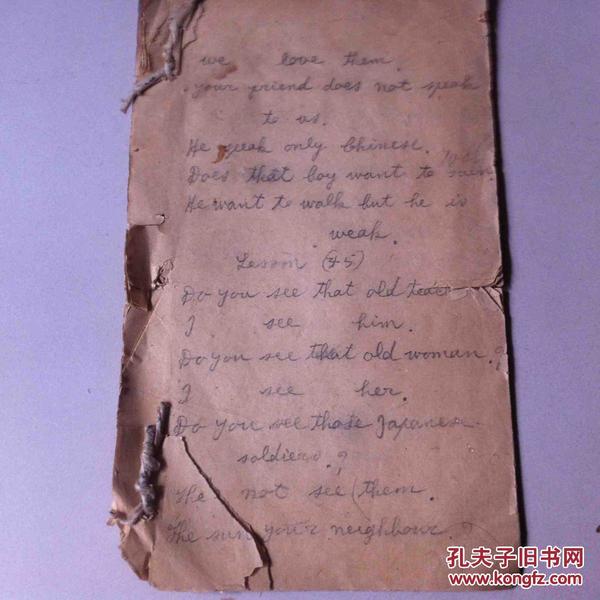 we love them.
your friend does not speak
to us.
He speak only Chinese.
Does that boy want to
He want to walk but he is
weak.
Lesson (45)
Do you see that old
I see him.
Do you see that old woman ?
I see her.
Do you see those Japanese
soldiers ?
The not see them.
The your neighbour ?
孔夫子旧书网
www.kongfz.com